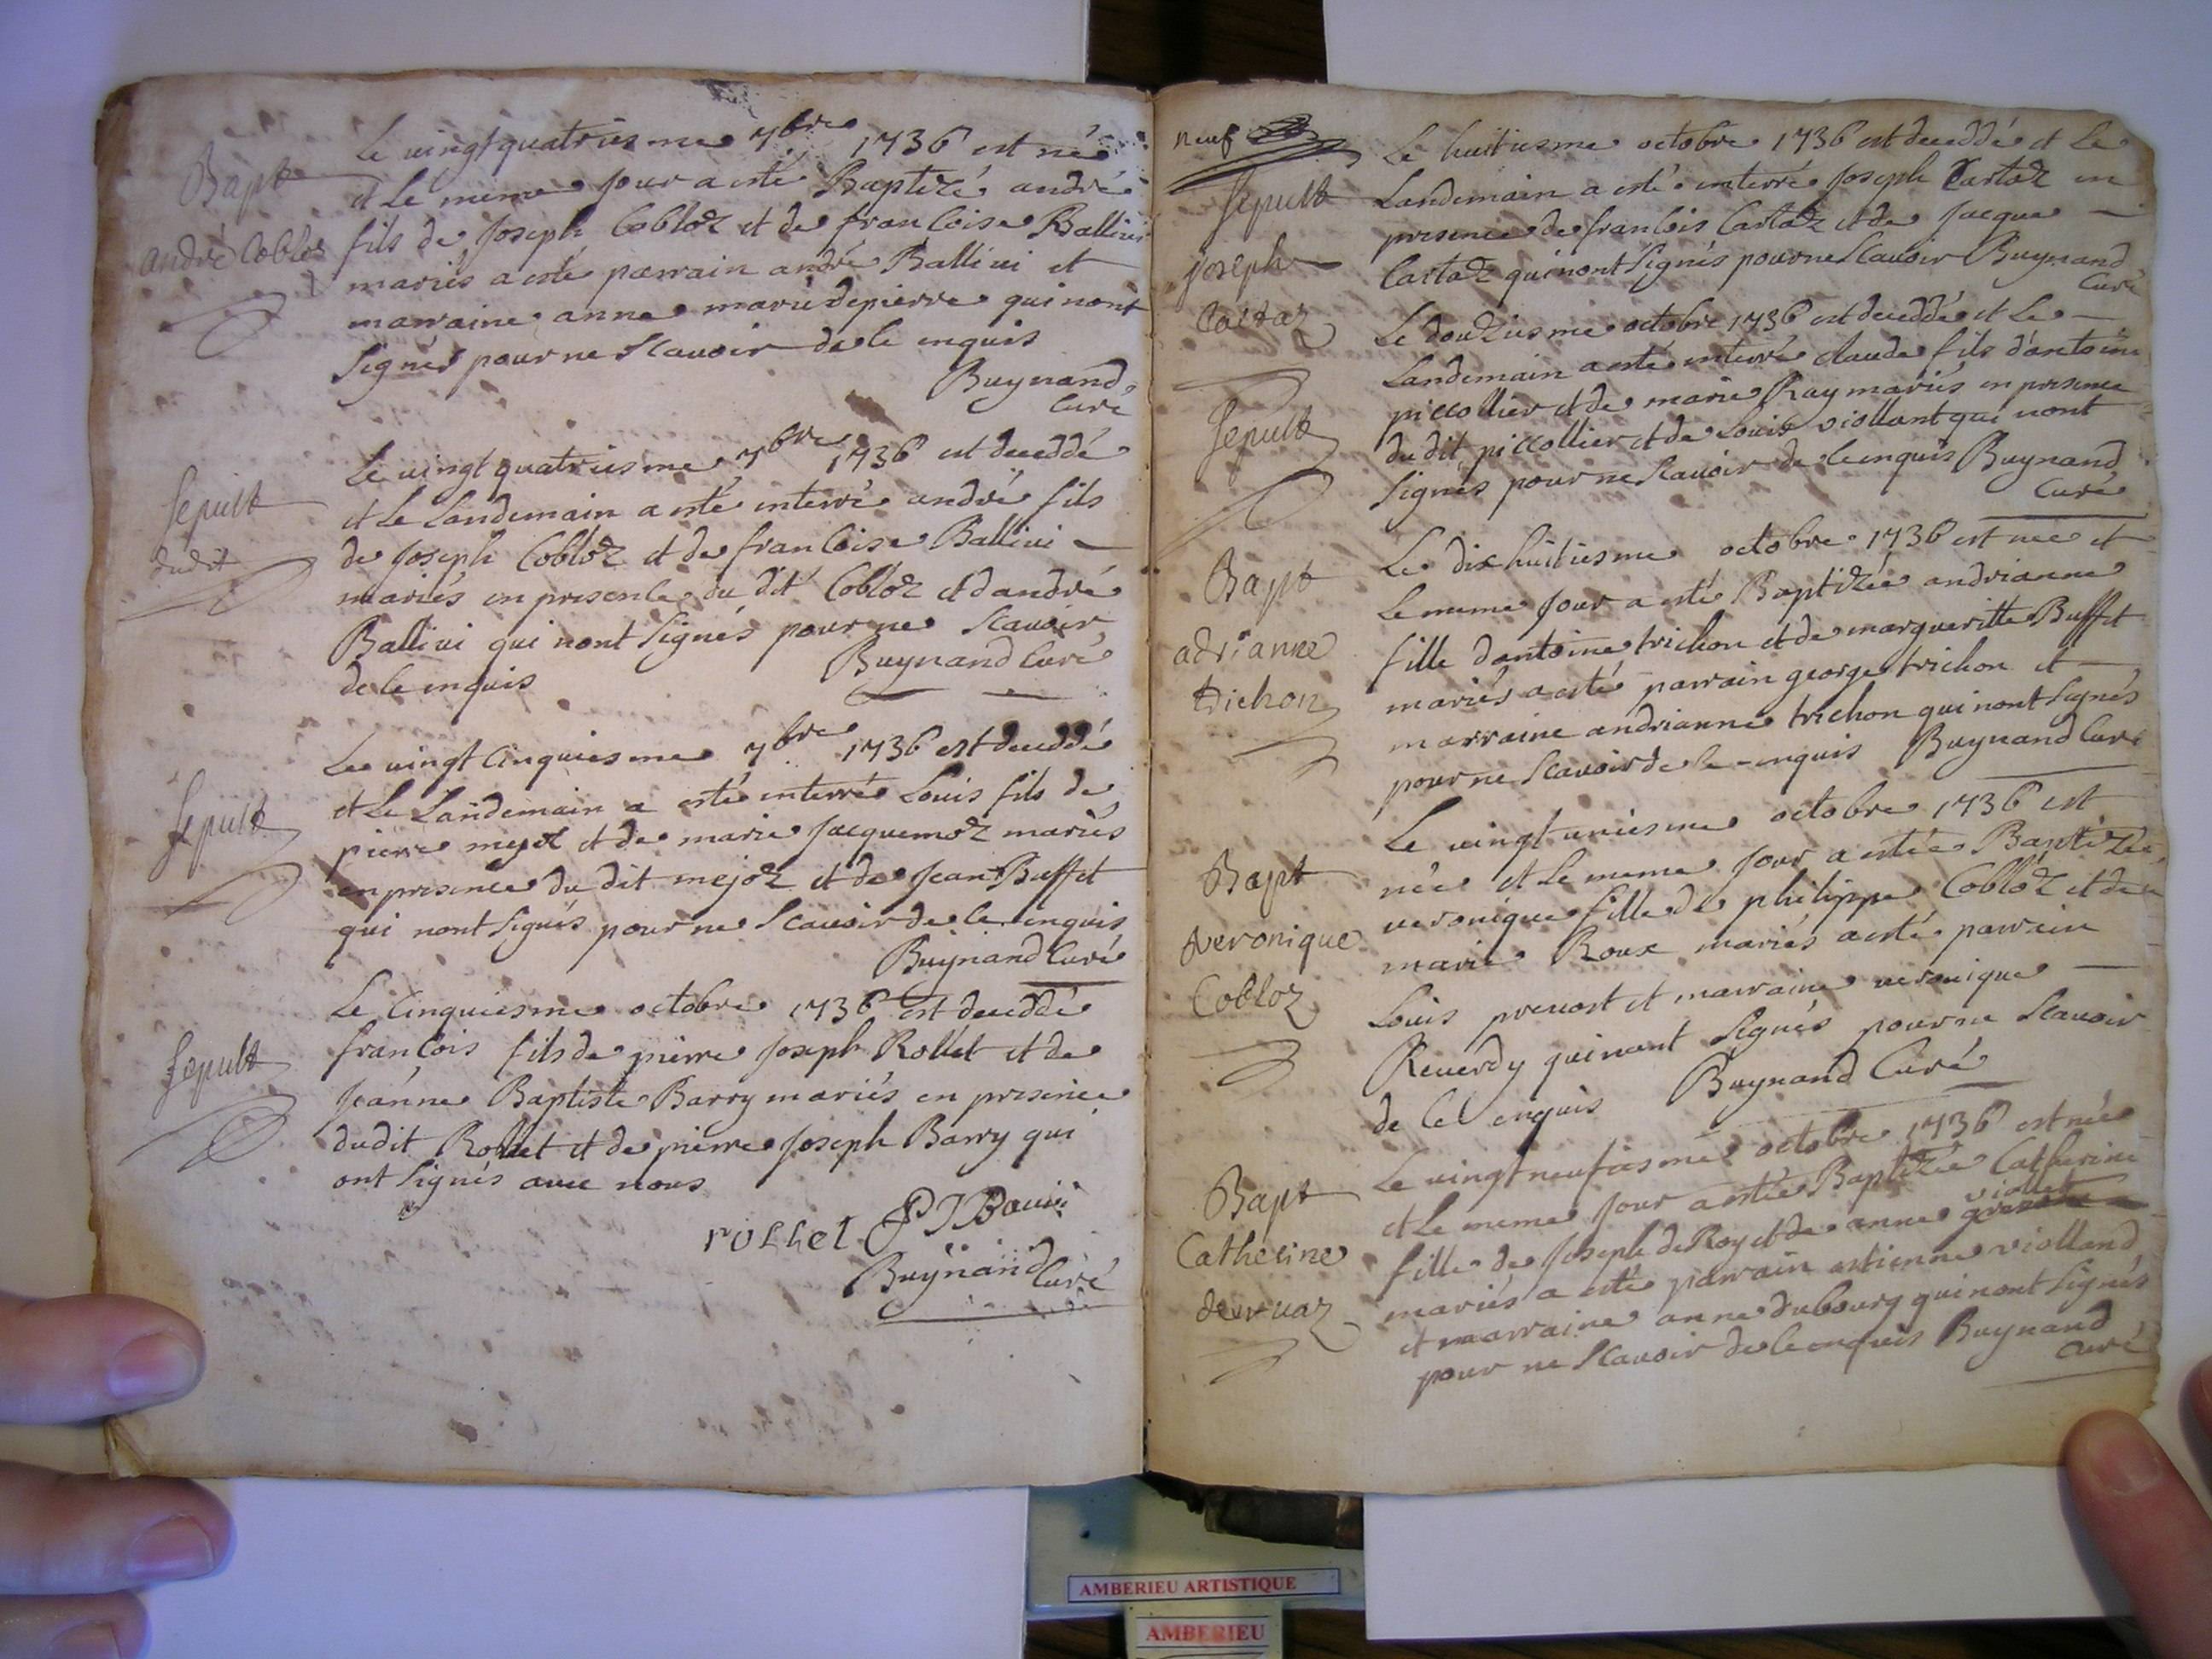 Bapt
andré Cobloz
Le vingtquatriesme 7bre 1736 est né
et Le meme Jour a esté Baptizé andré
fils de Joseph Cobloz et de francoise Ballivi
mariés a esté parrain andré Ballivi et
marraine anne marie depierre qui nont
Signés pour ne Scavoir de ce enquis
Buynand
Curé
Sepult
dudit
Le vingt quatriesme 7bre 1736 est deceddé
et Le Landemain a esté interré andré fils
de Joseph Cobloz et de francoise Ballivi
mariés en presence du dit Cobloz et d'andré
Ballivi qui nont Signés pour ne Scavoir
de ce enquis Buynand Curé
Sepult
Le vingt cinquiesme 7bre 1736 est deceddé
et Le Landemain a esté interré Louis fils de
pierre et de marie Jacquemoz mariés
en presence du dit mejoz et de Jean Buffet
qui nont Signés pour ne Scavoir de ce enquis
Buynand Curé
Sepult
Le Cinquiesme octobre 1736 est deceddé
francois fils de pierre Joseph Rollet et de
Jeanne Baptiste Barry mariés en presence
dudit Rollet et de pierre Joseph Barry qui
ont Signés avec nous
rollet P J
Buynand
Curé
neuf
Sepult
joseph
Cartaz
Le huitiesme octobre 1736 est deceddé et Le
Landemain a esté interré Joseph Cartaz en
presence de francois Cartaz et de Jacque
Cartaz qui nont Signés pour ne Scavoir Buynand
Curé
Sepult
Le douziesme octobre 1736 est deceddé et Le
Landemain a esté interré claude fils d'antoine
piccollier et de marie Ray mariés en presence
du dit piccollier et de Louis viollant qui nont
Signés pour ne Scavoir de ce enquis Buynand
Curé
Bapt
adrianne
trichon
Le dix huitiesme octobre 1736 est nee et
Le meme Jour a esté Baptizée andrianne
fille d'antoine trichon et de margueritte Buffet
mariés a esté parrain george trichon et
marraine andrianne trichon qui nont Signés
pour ne Scavoir de ce enquis Buynand Curé
Bapt
veronique
Cobloz
Le vingt uniesme octobre 1736 est
née et Le meme Jour a estée Baptizée
veronique fille de philippe Cobloz et de
marie Roux mariés a esté parrain
Louis prevost et marraine veronique
Reverdy qui nont Signés pour ne Scavoir
de Ce enquis Buynand Curé
Bapt
Catherine
Le vingt neufiesme octobre 1736 est née
et Le meme Jour a estée Baptizée Catherine
viollet
fille de Joseph de Roy et de anne
mariés a esté parrain estienne violland
et marraine anne dubourg qui nont Signés
pour ne Scavoir de ce enquis Buynand
curé
AMBERIEU ARTISTIQUE
AMBERIEU